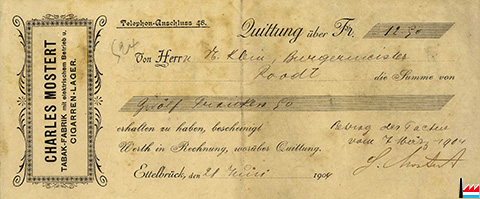 CHARLES MOSTERT
TABAK-FABRIK mit elektrischem Betrieb u.
CIGARREN-LAGER.
Telephon-Anschluss 48.
Quittung über Fr. 12.50
Von Herrn N. Klein, Burgermeister
Roodt die Summe von
Zwölf Franken 50
erhalten zu haben, bescheinigt
Werth in Rechnung, worüber Quittung.
Ettelbrück, den 21 Juni 1904
Betrag der Factur
vom 7 März 1904
Mostert